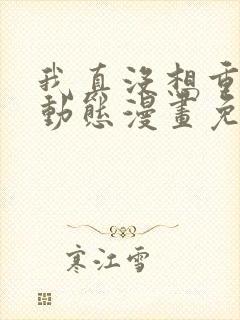 我真沒想重
動態漫畫免
寒江雪